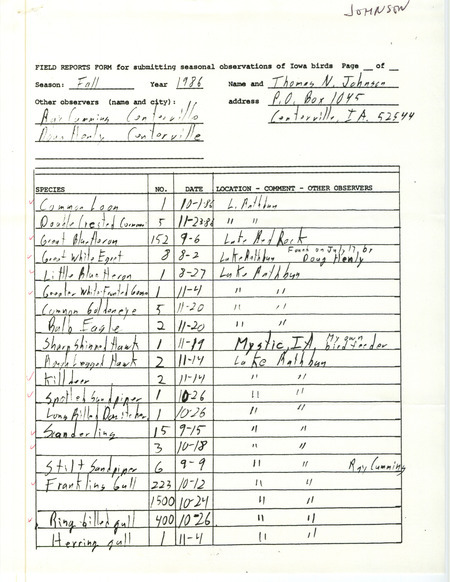 JOHNSON
FIELD REPORTS FORM for submitting seasonal observations of Iowa birds Page __ of __
Season: Fall Year 1986 Name and Thomas N. Johnson
Other observers (name and city): address P.O. Box 1045
Ray Cumming Centerville Centerville, IA. 52544
Doug Henly Centerville
SPECIES NO. DATE LOCATION - COMMENT - OTHER OBSERVERS
Common Loon 1 10-1-86 L. Rathbun
Double Crested Cormor 5 11-23-86 " "
Great Blue Heron 152 9-6 Lake Red Rock
Great White Egret 8 8-2 Lake Rathbun Found on July 17, by Doug Henly
Little Blue Heron 1 8-27 Lake Rathbun
Greater White Fronted Goose 1 11-4 " "
Common Goldeneye 5 11-20 " "
Bald Eagle 2 11-20 " "
Sharp Shinned Hawk 1 11-19 Mystic, IA, My own Bird Feeder
Rough Legged Hawk 2 11-14 Lake Rathbun
Killdeer 2 11-14 " "
Spotted Sandpiper 1 10-26 " "
Long Billed Dowitcher 1 10-26 " "
Sanderling 15 9-15 " "
3 10-18 " "
Stilt Sandpiper 6 9-9 " " Ray Cumming
Franklins Gull 223 10-12 " "
1500 10-24 " "
Ring-billed gull 400 10-26 " "
Herring gull 1 11-4 " "